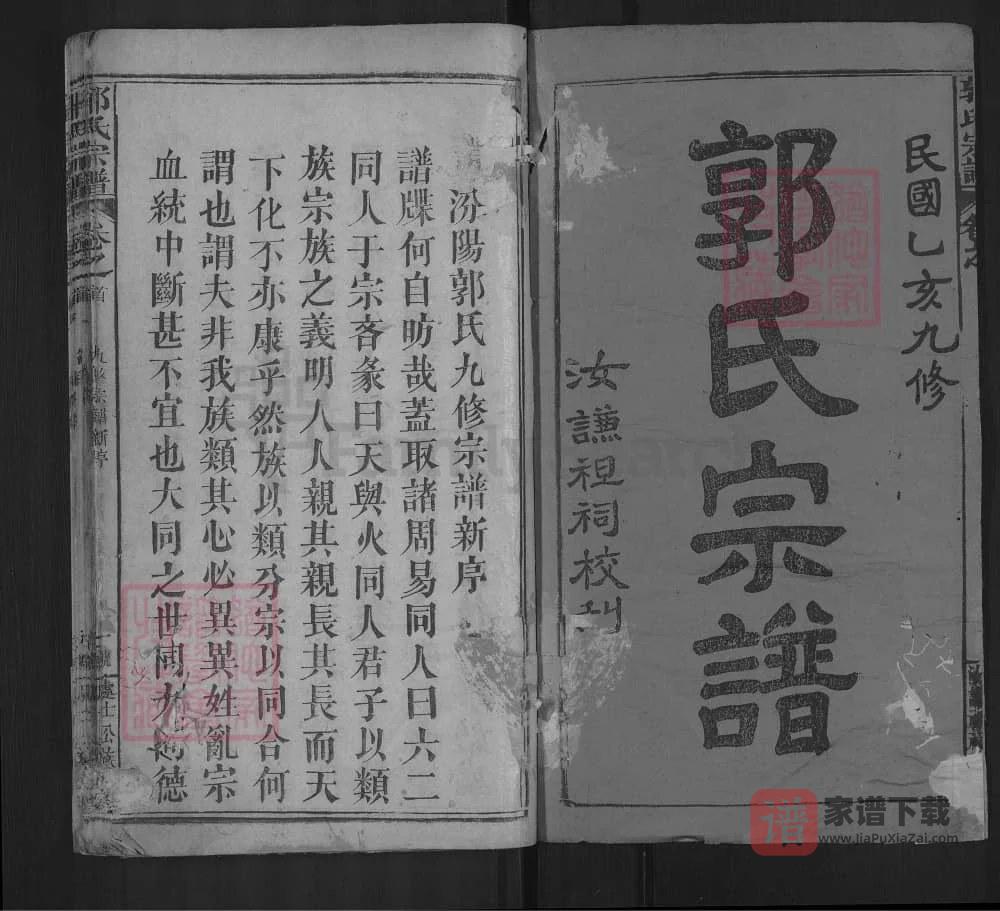 民國乙亥九修
郭氏宗譜
汝謙祖祠校刊
汾陽郭氏九修宗譜新序
譜牒何自昉哉蓋取諸周易同人曰六二
同人于宗吝彖曰天與火同人君子以類
族宗族之義明人人親其親長其長而天
下化不亦康乎然族以類分宗以同合何
謂也謂夫非我族類其心必異異姓亂宗
血統中斷甚不宜也大同之世同力同德
郭氏宗譜 卷之首
九修宗譜新序
谱
家谱下载
www.JiaPuXiaZai.com